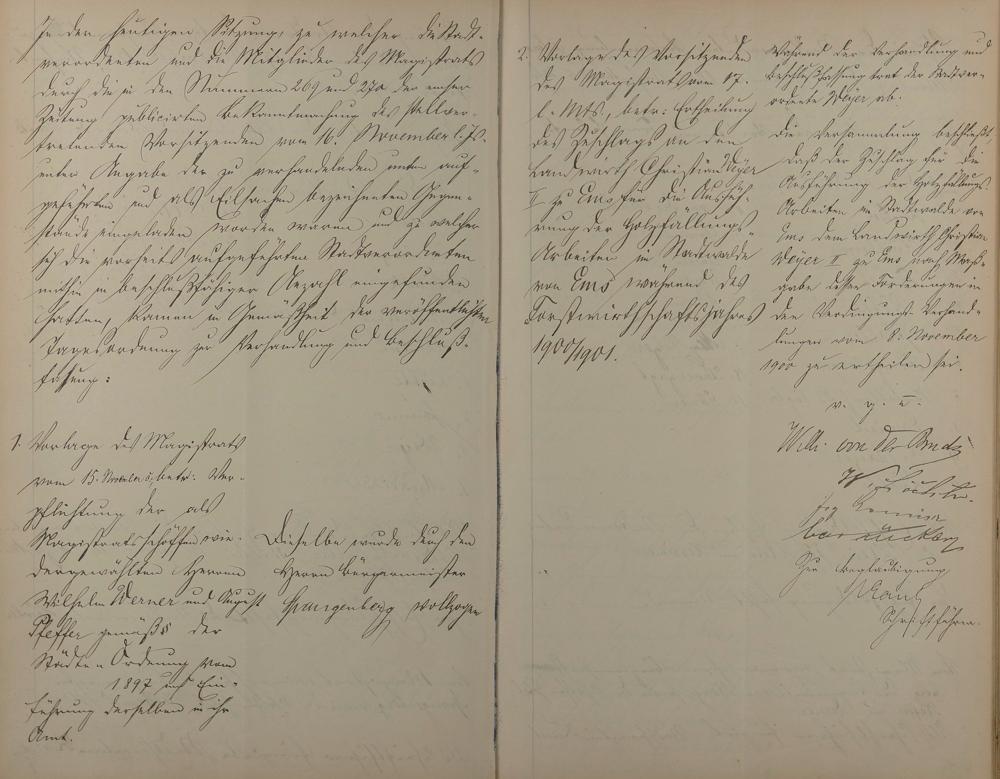 In der heutigen Sitzung, zu welcher die Stadt-
verordneten und die Mitglieder des Magistrats
durch die in den Nummern 269 und 270 der Emser
Zeitung publicirten Bekanntmachung des stellver-
tretenden Vorsitzenden vom 16. November l. Js.
unter Angabe der zu verhandelnden unten auf-
geführten und als Eilsachen bezeichneten Gegen-
stände eingeladen worden waren und zu welcher
sich die vorseits aufgeführten Stadtverordneten
mithin in beschlußfähiger Anzahl eingefunden
hatten, kamen in Gemäßheit der veröffentlichten
Tagesordnung zur Verhandlung und Beschluß-
fassung:
1. Vorlage des Magistrats
vom 15. November, betr. Ver-
pflichtung der als
Magistratsschöffen wie-
dergewählten Herren
Wilhelm Werner und August
Pfeffer gemäß § der
Städte-Ordnung vom
1897 und Ein-
führung derselben in ihr
Amt.
Dieselbe wurde durch den
Herrn Bürgermeister
Spangenberg vollzogen
2. Vorlage des Vorsitzenden
des Magistrats vom 17.
l. Mts., betr. Ertheilung
des Zuschlags an den
Landwirth Christian Weyer
II zu Ems für die Ausfüh-
rung der Holzfällungs-
Arbeiten im Stadtwalde
von Ems während des
Forstwirthschaftsjahres
1900/1901.
Während der Verhandlung und
Beschlußfassung trat der Stadtver-
ordnete Weyer ab.
Die Versammlung beschließt,
daß der Zuschlag für die
Ausführung der Holzfällungs-
Arbeiten im Stadtwalde von
Ems dem Landwirth Christian
Weyer II zu Ems nach Maß-
gabe dessen Forderungen in
den Verdingungs-Verhand-
lungen vom 8. November
1900 zu ertheilen sei.
v. g. u.
Willi von der
W.
Zur Beglaubigung
Schriftführer.